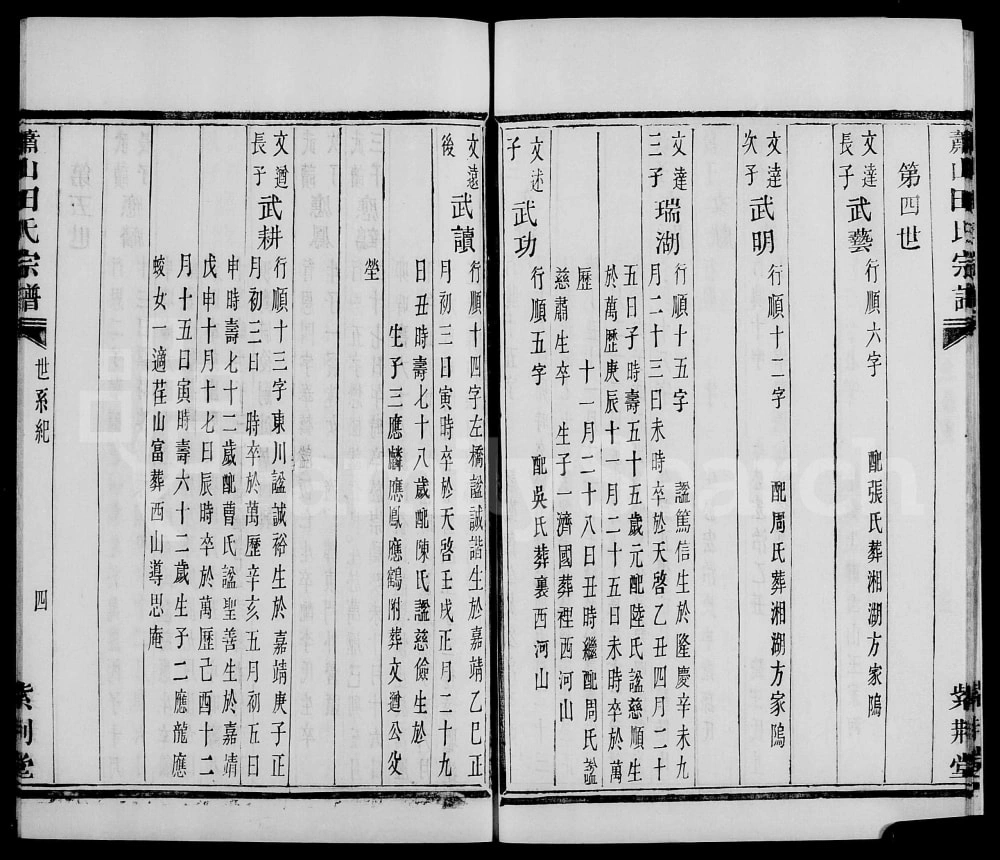 蕭山田氏宗譜
紫荊堂
第四世
文達長子 武藝 行順六字 配張氏葬湘湖方家塢
文達次子 武明 行順十二字 配周氏葬湘湖方家塢
文達三子 瑞湖 行順十五字 諡篤信生於隆慶辛未九
月二十三日未時卒於天啓乙丑四月二十
五日子時壽五十五歲元配陸氏諡慈順生
於萬歷庚辰十一月二十五日未時卒於萬
歷 十二月二十八日丑時繼配周氏諡
慈肅生卒 生子一濟國葬裡西河山
文述子 武功 行順五字 配吳氏葬裏西河山
文遠後 武讀 行順十四字左橋諡誠諧生於嘉靖乙巳正
月初三日寅時卒於天啓壬戌正月二十九
日丑時壽七十八歲配陳氏諡慈儉生於
生子三應麟應鳳應鶴附葬文遒公父
塋
文遒長子 武耕 行順十三字東川諡誠裕生於嘉靖庚子正
月初三日 時卒於萬歷辛亥五月初五日
申時壽七十二歲配曹氏諡聖善生於嘉靖
戊申十月十七日辰時卒於萬歷己酉十二
月十五日寅時壽六十二歲生子二應龍應
蛟女一適茬山富葬西山導思庵
蕭山田氏宗譜
世系紀
四
紫荊堂